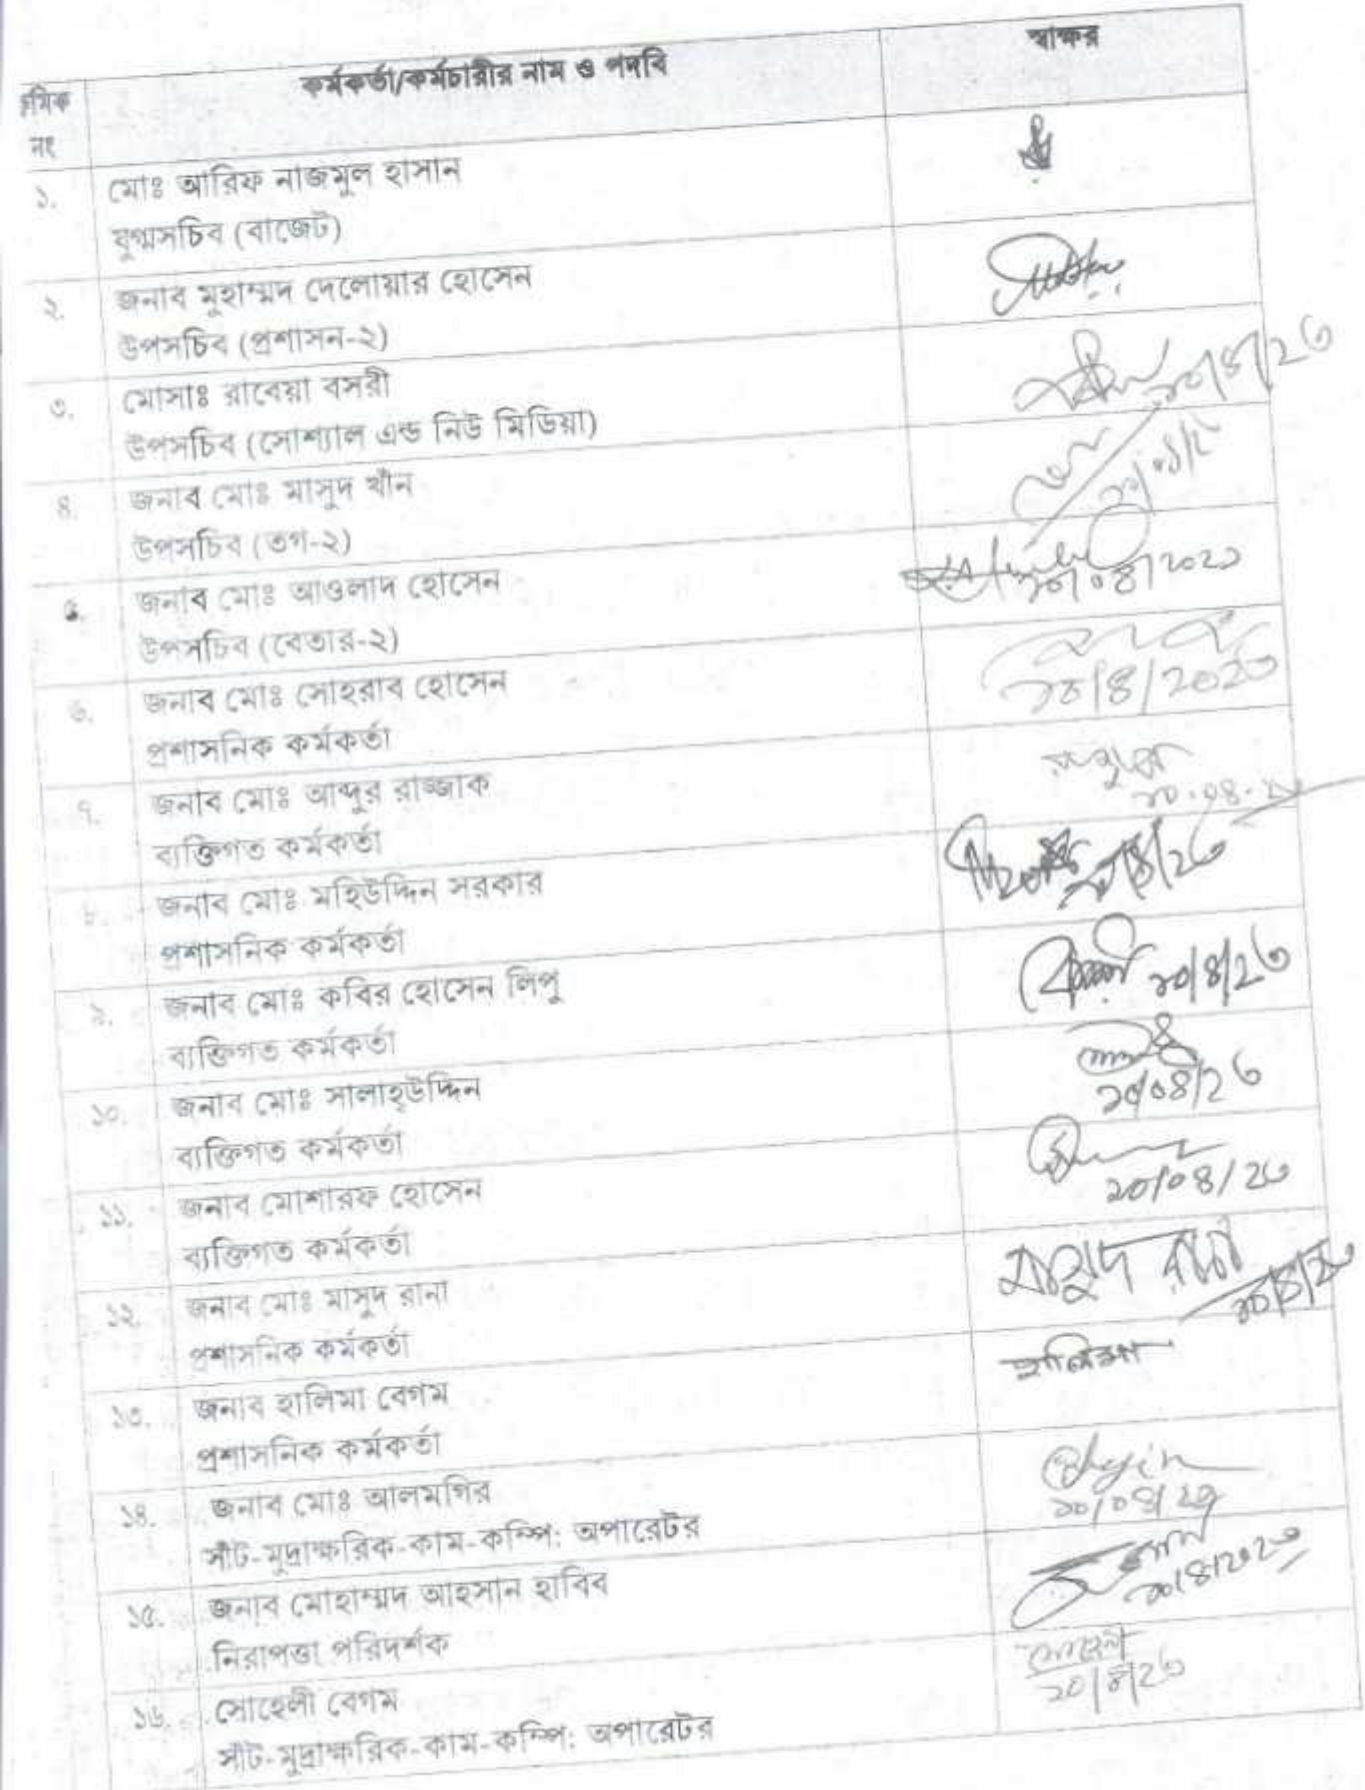 ক্রমিক নং কর্মকর্তা/কর্মচারীর নাম ও পদবি স্বাক্ষর
১. মোঃ আরিফ নাজমুল হাসান
যুগ্মসচিব (বাজেট)
২. জনাব মুহাম্মদ দেলোয়ার হোসেন
উপসচিব (প্রশাসন-২)
৩. মোসাঃ রাবেয়া বসরী
উপসচিব (সোশ্যাল এন্ড নিউ মিডিয়া)
২০/৪/২৩
৪. জনাব মোঃ মাসুদ খাঁন
উপসচিব (তগ-২)
৫. জনাব মোঃ আওলাদ হোসেন
উপসচিব (বেতার-২)
৬. জনাব মোঃ সোহরাব হোসেন
প্রশাসনিক কর্মকর্তা
২০/৪/২০২৩
৭. জনাব মোঃ আব্দুর রাজ্জাক
ব্যক্তিগত কর্মকর্তা
৮. জনাব মোঃ মহিউদ্দিন সরকার
প্রশাসনিক কর্মকর্তা
২০/৪/২৩
৯. জনাব মোঃ কবির হোসেন লিপু
ব্যক্তিগত কর্মকর্তা
২০/৪/২৩
১০. জনাব মোঃ সালাহ্উদ্দিন
ব্যক্তিগত কর্মকর্তা
২০/০৪/২৩
১১. জনাব মোশারফ হোসেন
ব্যক্তিগত কর্মকর্তা
২০/০৪/২৩
১২. জনাব মোঃ মাসুদ রানা মাসুদ রানা
প্রশাসনিক কর্মকর্তা
১৩. জনাব হালিমা বেগম হালিমা
প্রশাসনিক কর্মকর্তা
১৪. জনাব মোঃ আলমগির
সাঁট-মুদ্রাক্ষরিক-কাম-কম্পি: অপারেটর
২০/০৪/২৩
১৫. জনাব মোহাম্মদ আহসান হাবিব
নিরাপত্তা পরিদর্শক
২০/৪/২০২৩
১৬. সোহেলী বেগম
সাঁট-মুদ্রাক্ষরিক-কাম-কম্পি: অপারেটর
২০/৪/২৩